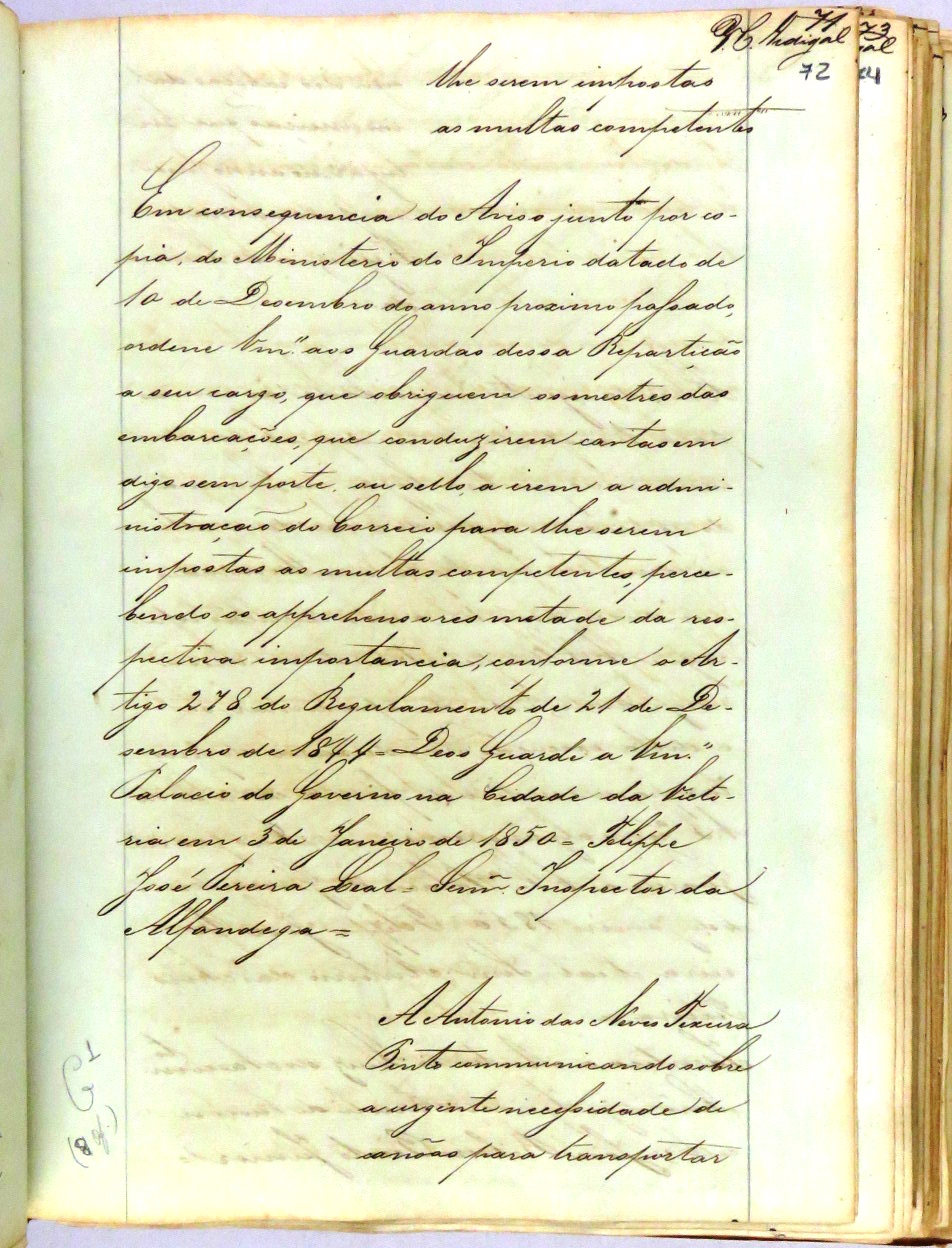 71
72
lhe serem impostas
as multas competentes
Em consequencia do Aviso junto por co-
pia, do Ministerio do Imperio datado de
10 de Desembro do anno proximo passado,
ordene Vm.ce aos Guardas dessa Repartição
a seu cargo, que obriguem os mestres das
embarcações, que conduzirem cartas em
digo sem porte, ou sello, a irem a admi-
nistração do Correio para lhe serem
impostas as multas competentes, perce-
bendo os apprehensores metade da res-
pectiva importancia, conforme o Ar-
tigo 278 do Regulamento de 21 de De-
sembro de 1844 = Deos Guarde a Vm.ce
Palacio do Governo na Cidade da Victo-
ria em 3 de Janeiro de 1850 = Felippe
José Pereira Leal = Senr. Inspector da
Alfandega =
A Antonio das Neves Teixeira
Pinto communicando sobre
a urgente necessidade de
canôas para transportar